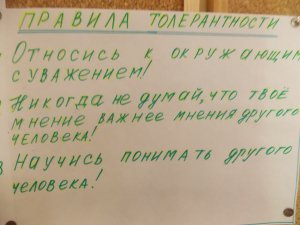 ПРАВИЛА ТОЛЕРАНТНОСТИ
Относись к окружающим
с уважением!
Никогда не думай, что твоё
мнение важнее мнения другого
человека!
3 Научись понимать другого
человека!